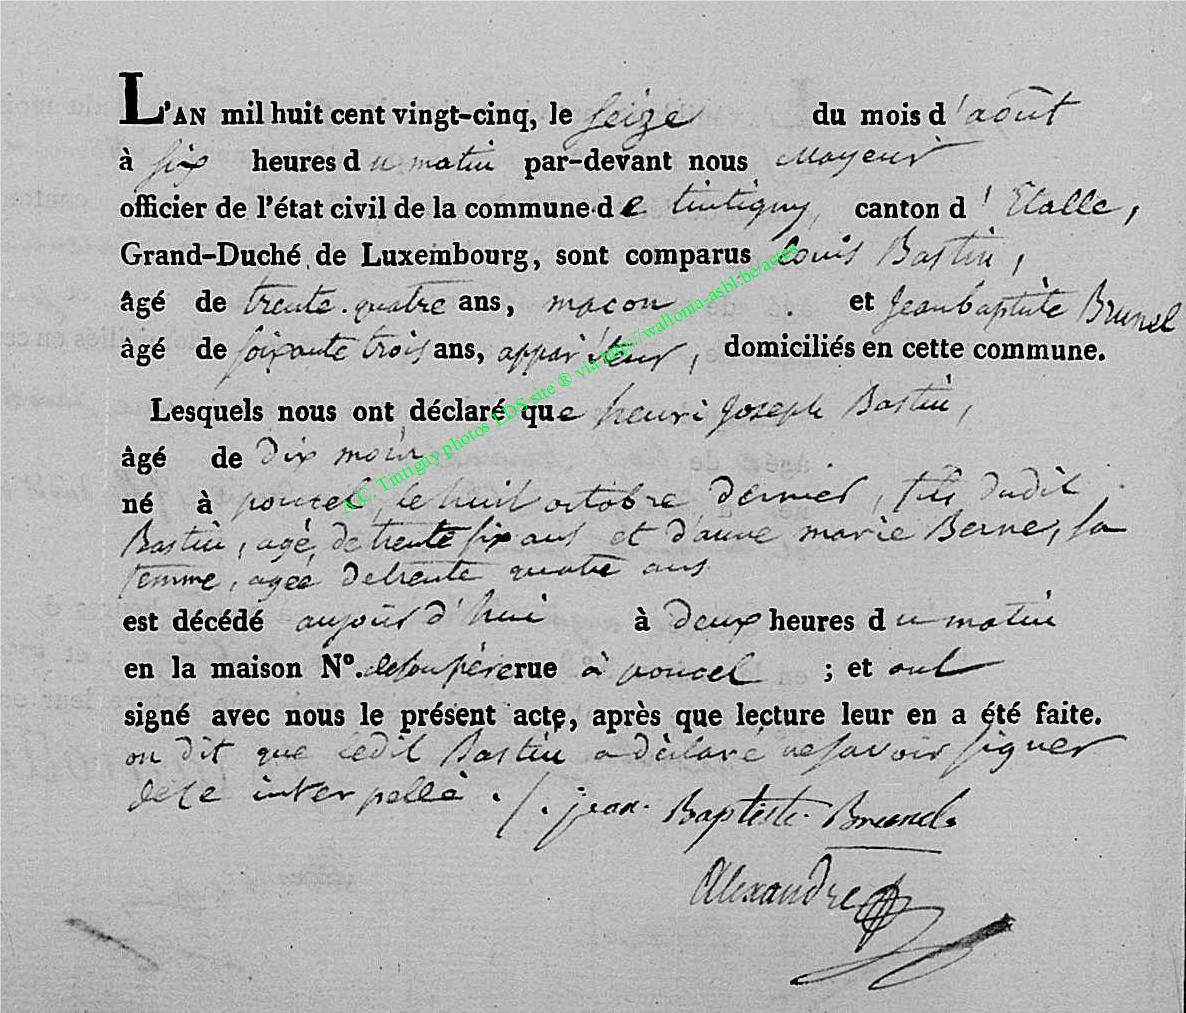 L'AN mil huit cent vingt-cinq, le seize du mois d'août
à six heures du matin par-devant nous Mayeur
officier de l'état civil de la commune de tintigny, canton d'Etalle,
Grand-Duché de Luxembourg, sont comparus Louis Bastin,
âgé de trente-quatre ans, maçon et Jean baptiste Brunel
âgé de soixante trois ans, appariteur, domiciliés en cette commune.
Lesquels nous ont déclaré que henri Joseph Bastin,
âgé de dix mois
né à poncel, le huit octobre dernier, fils dudit
Bastin, agé de trente six ans et d'anne marie Berne, sa
femme, agée de trente quatre ans
est décédé aujourd'hui à deux heures du matin
en la maison N°. de son père rue à poncel ; et ont
signé avec nous le présent acte, après que lecture leur en a été faite.
on dit que ledit Bastin a déclaré ne savoir signer
de ce interpellé ./. jean Baptiste Brunel.
Alexandre
A.C. Tintigny photos LDS site ® via http://wallonia-asbl.be/actes